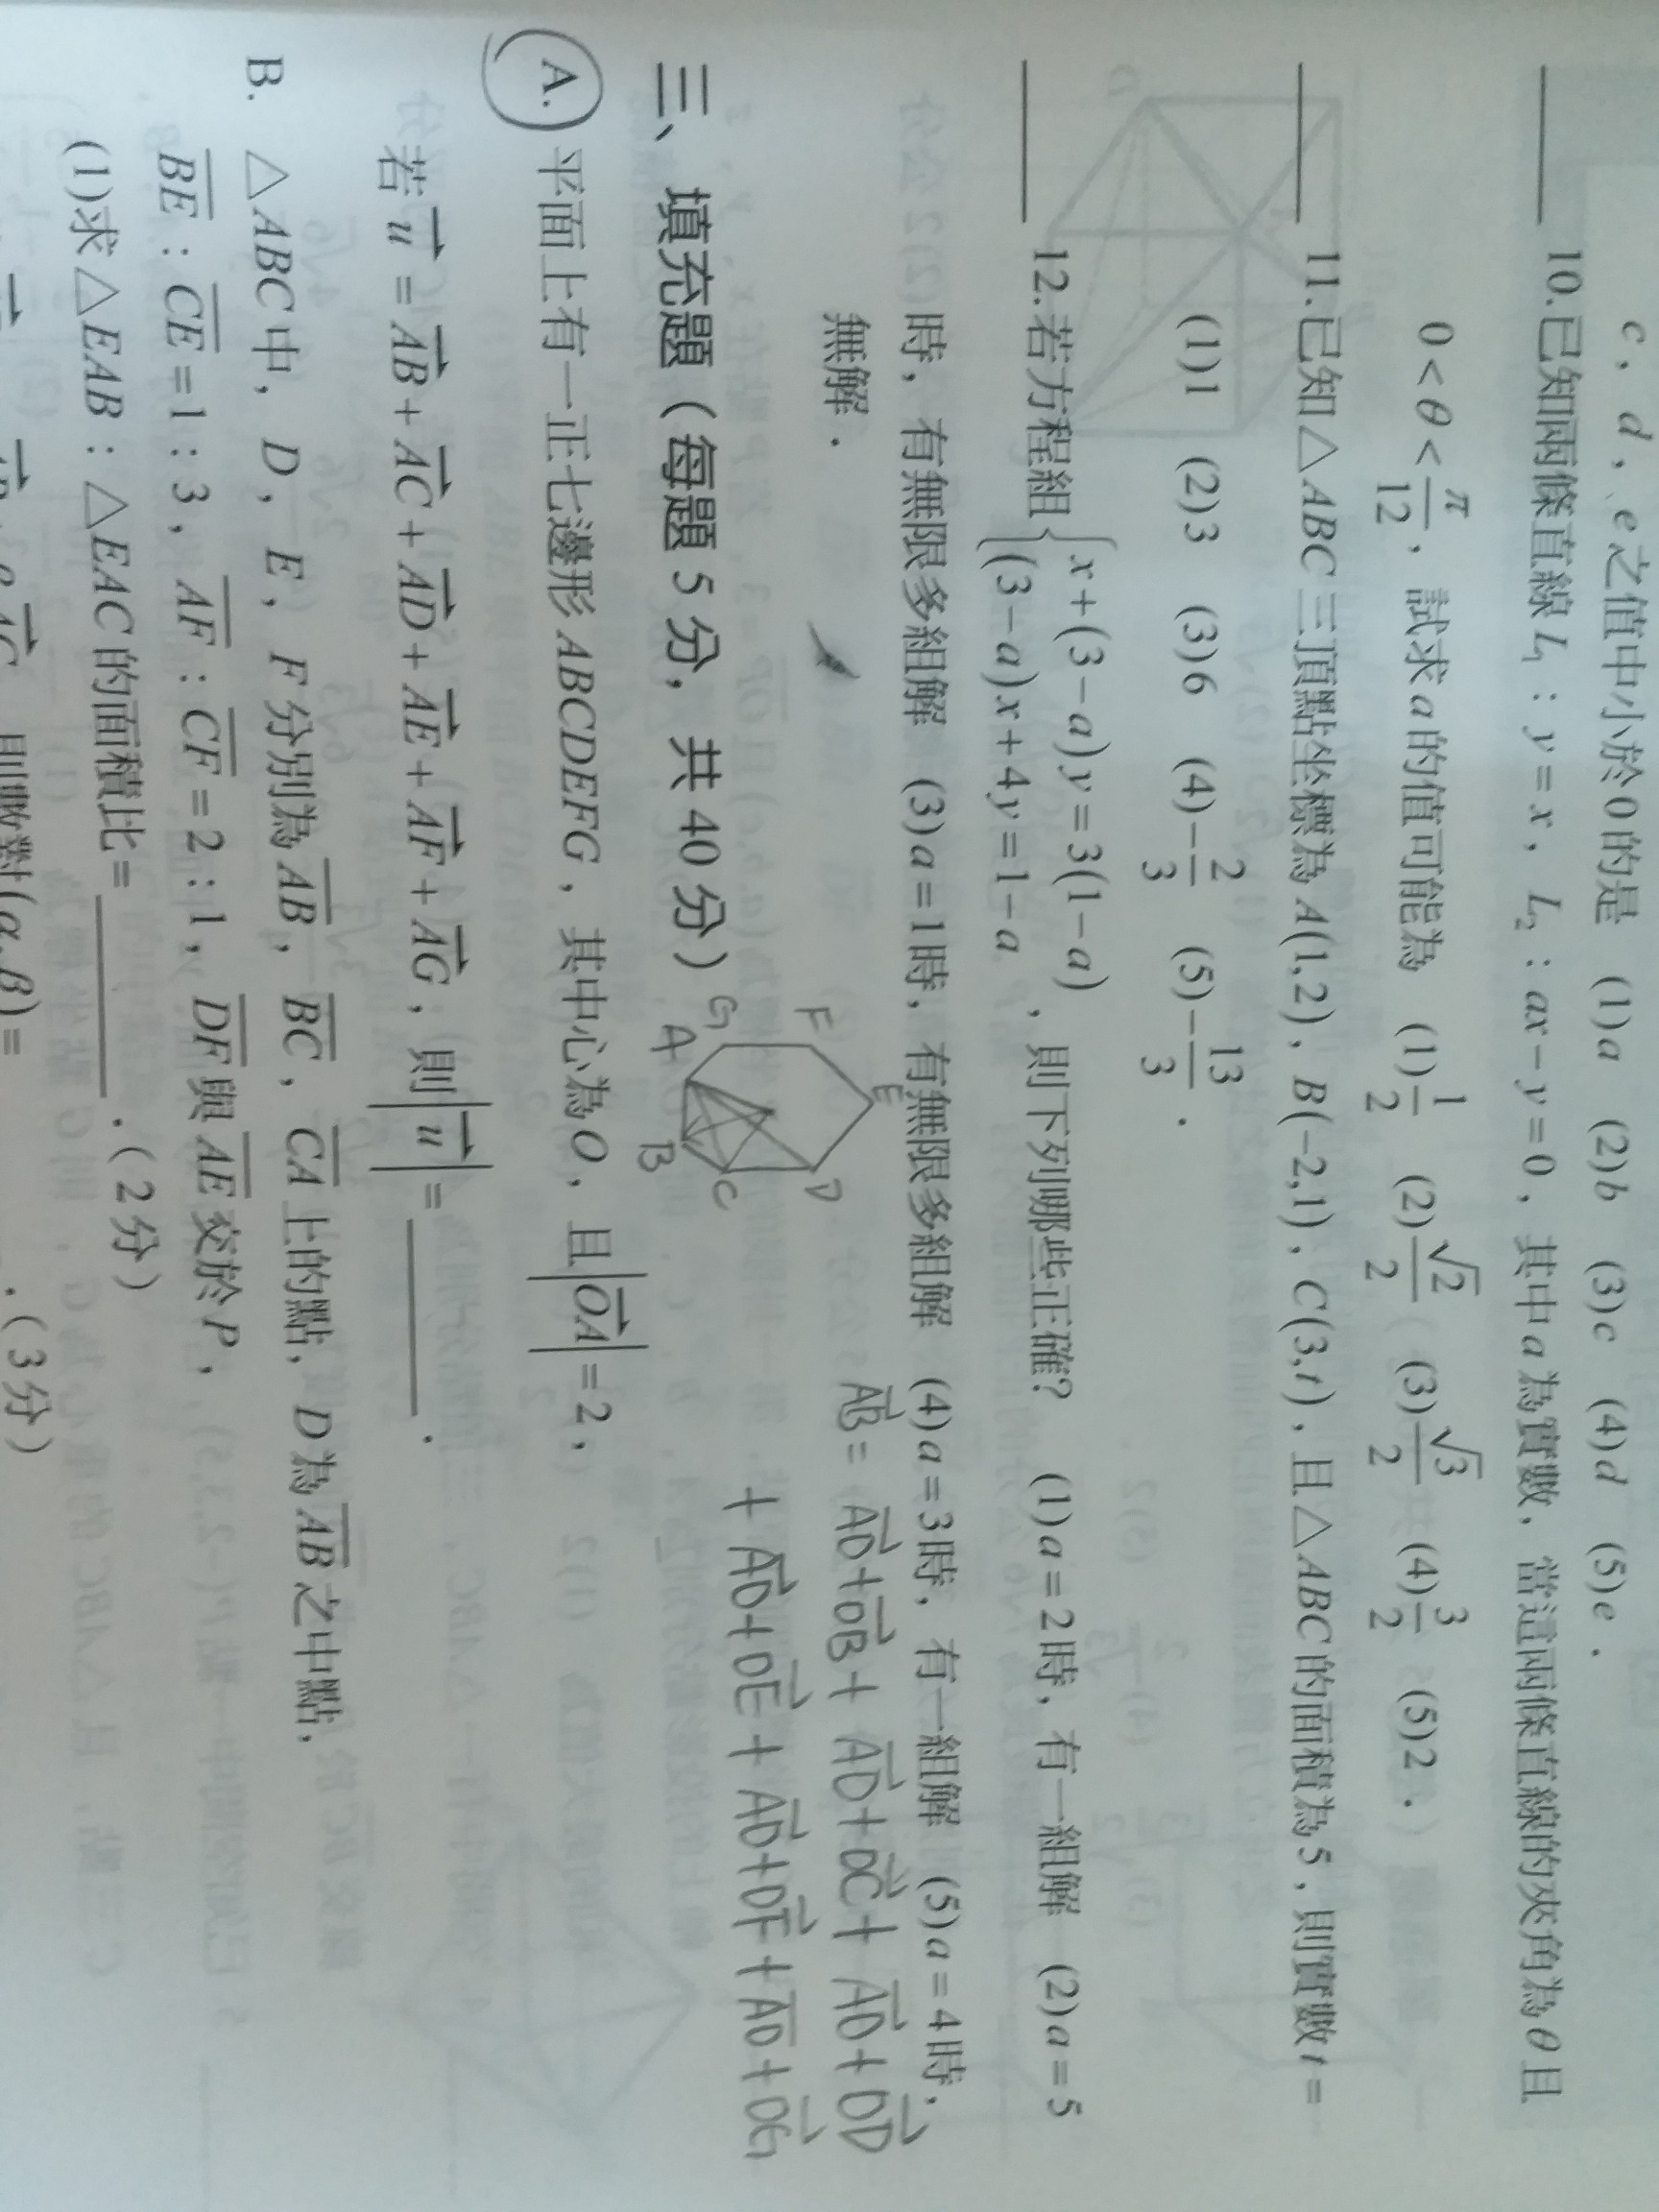 c，d，e之值中小於0的是 (1)a (2)b (3)c (4)d (5)e．
10.已知兩條直線L₁：y=x，L₂：ax−y=0，其中a為實數，當這兩條直線的夾角為θ且
0<θ<π/12，試求a的值可能為 (1)1/2 (2)√2/2 (3)√3/2 (4)3/2 (5)2．
11.已知△ABC三頂點坐標為A(1,2)，B(−2,1)，C(3,t)，且△ABC的面積為5，則實數t=
(1)1 (2)3 (3)6 (4)−2/3 (5)−13/3．
12.若方程組{x+(3−a)y=3(1−a)
(3−a)x+4y=1−a，則下列哪些正確？ (1)a=2時，有一組解 (2)a=5
時，有無限多組解 (3)a=1時，有無限多組解 (4)a=3時，有一組解 (5)a=4時，
無解．
AB→= AD→+DB→+ AD→+DC→+ AD→+DD→
+ AD→+DE→+ AD→+DF→+AD+DG→
F
E
G
A
D
B
C
三、填充題（每題5分，共40分）
A. 平面上有一正七邊形ABCDEFG，其中心為O，且|OA→|=2，
若u→=AB→+AC→+AD→+AE→+AF→+AG→，則|u→|=＿＿＿＿．
B. △ABC中，D，E，F分別為A̅B̅，B̅C̅，C̅A̅上的點，D為A̅B̅之中點，
B̅E̅：C̅E̅=1：3，A̅F̅：C̅F̅=2：1，D̅F̅與A̅E̅交於P，
(1)求△EAB：△EAC的面積比=＿＿＿＿．（2分）
則數對(α,β)=＿＿．（3分）